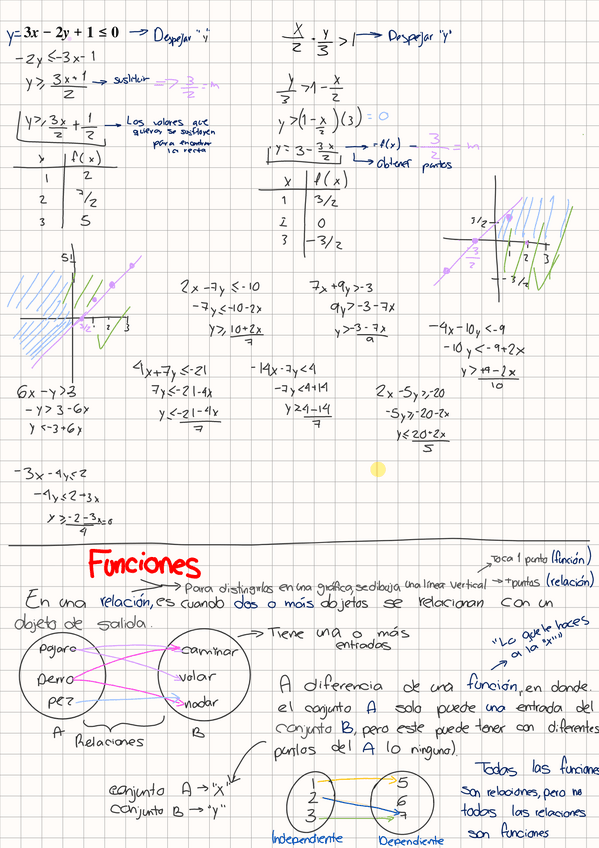 y= 3x − 2y + 1 ≤ 0 → Despejar "y"
-2y ≤ -3x-1
y ≥ 3x+1/2 → sustituir => 3/2 = m
y ≥ 3x/2 + 1/2 → Los valores que
quieras se sustituyen
para encontrar
la recta
x | f(x)
1 | 2
2 | 7/2
3 | 5
x/2 · y/3 > 1 → Despejar "y"
y/3 > 1 - x/2
y > (1 - x/2)(3) = 0
y = 3 - 3x/2 → f(x) - 3/2 = m
→ obtener puntos
x | f(x)
1 | 3/2
2 | 0
3 | -3/2
3/2
3/2
1 2 3
-3/2
5
3/2 1 2 3
2x -7y ≤ -10
-7y ≤ -10-2x
y ≥ 10+2x/7
7x+9y > -3
9y > -3-7x
y > -3-7x/9
-4x-10y < -9
-10y < -9+2x
y > +9-2x/10
6x - y > 3
-y > 3-6x
y < -3+6x
4x+7y ≤ -21
7y ≤ -21-4x
y ≤ -21-4x/7
-14x-7y < 4
-7y < 4+14
y ≥ 4-14/7
2x -5y ≥ -20
-5y ≥ -20-2x
y ≤ 20+2x/5
-3x -4y ≤ 2
-4y ≤ 2+3x
y ≥ -2-3x/4
Funciones
Toca 1 punto (función)
→ Para distinguirlas en una gráfica, se dibuja una línea vertical → +puntos (relación)
En una relación, es cuando dos o más objetos se relacionan con un
objeto de salida.
→ Tiene una o más
entradas
"Lo que le haces
a la "x""
pajaro
perro
pez
caminar
volar
nadar
A
Relaciones
B
A diferencia de una función, en donde
el conjunto A solo puede una entrada del
conjunto B, pero este puede tener con diferentes
puntos del A (o ninguno).
conjunto A → "x"
conjunto B → "y"
1
2
3
5
6
7
Independiente
Dependiente
Todas las funciones
son relaciones, pero no
todas las relaciones
son funciones